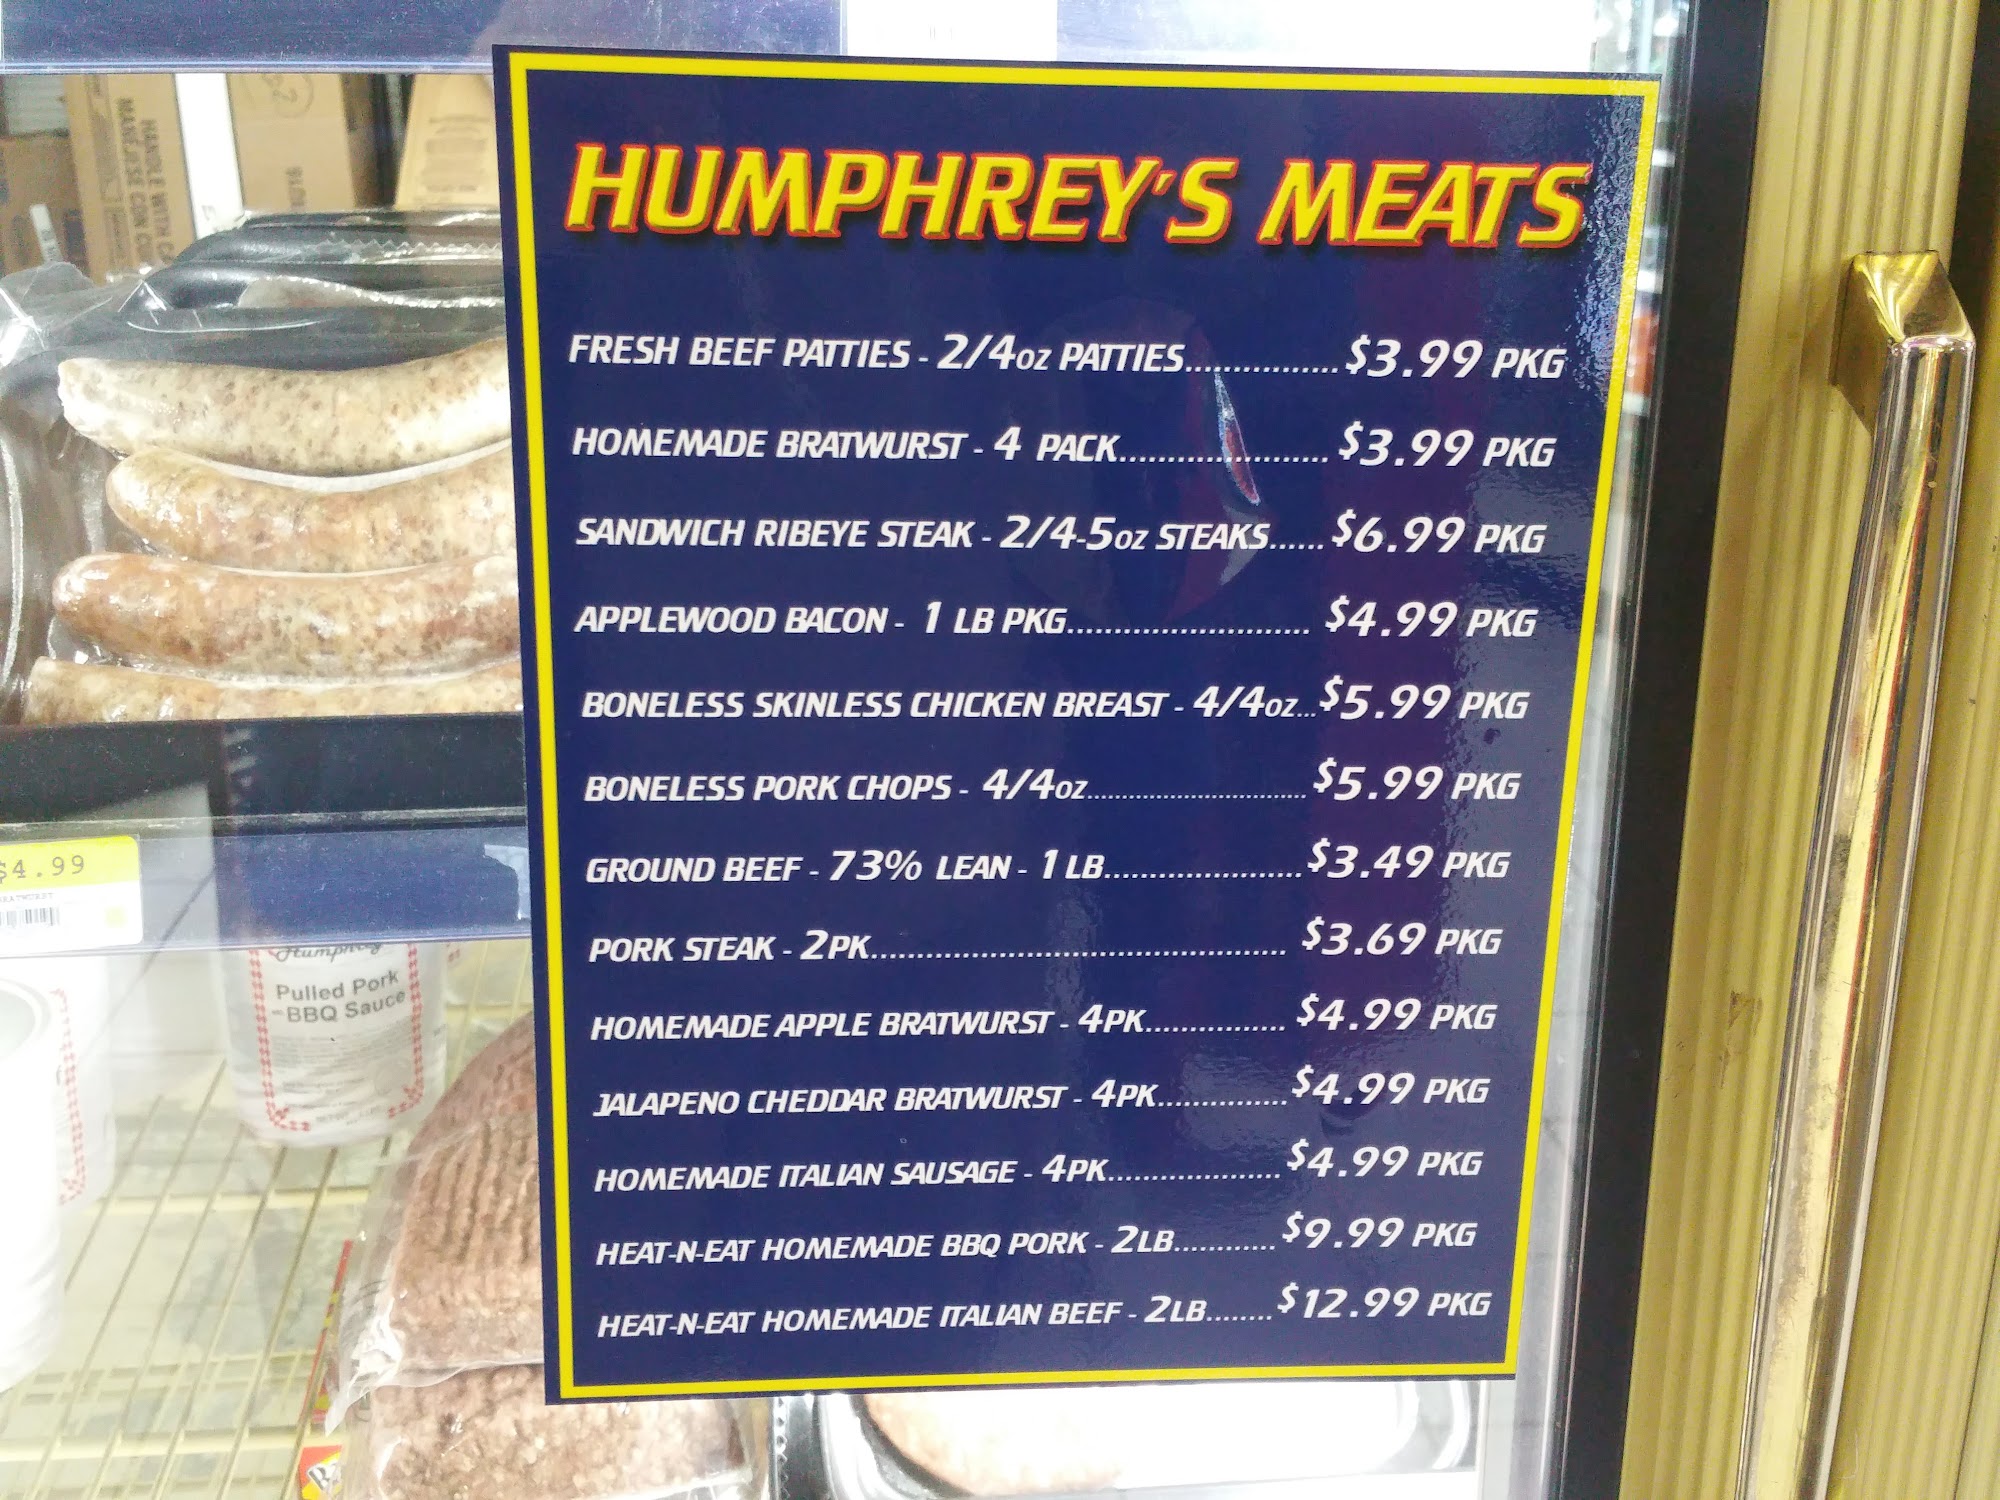 HUMPHREY'S MEATS
FRESH BEEF PATTIES - 2/4oz PATTIES................$3.99 PKG
HOMEMADE BRATWURST - 4 PACK...................... $3.99 PKG
SANDWICH RIBEYE STEAK - 2/4-5oz STEAKS...... $6.99 PKG
APPLEWOOD BACON - 1 LB PKG.......................... $4.99 PKG
BONELESS SKINLESS CHICKEN BREAST - 4/4oz...$5.99 PKG
BONELESS PORK CHOPS - 4/4oz................................ $5.99 PKG
GROUND BEEF - 73% LEAN - 1 LB.....................$3.49 PKG
PORK STEAK - 2PK............................................ $3.69 PKG
HOMEMADE APPLE BRATWURST - 4PK............... $4.99 PKG
JALAPENO CHEDDAR BRATWURST - 4PK..............$4.99 PKG
HOMEMADE ITALIAN SAUSAGE - 4PK................... $4.99 PKG
HEAT-N-EAT HOMEMADE BBQ PORK - 2LB........... $9.99 PKG
HEAT-N-EAT HOMEMADE ITALIAN BEEF - 2LB....... $12.99 PKG
HANDLE WITH
MANEJESE CON
$4.99
Pulled Pork
BBQ Sauce